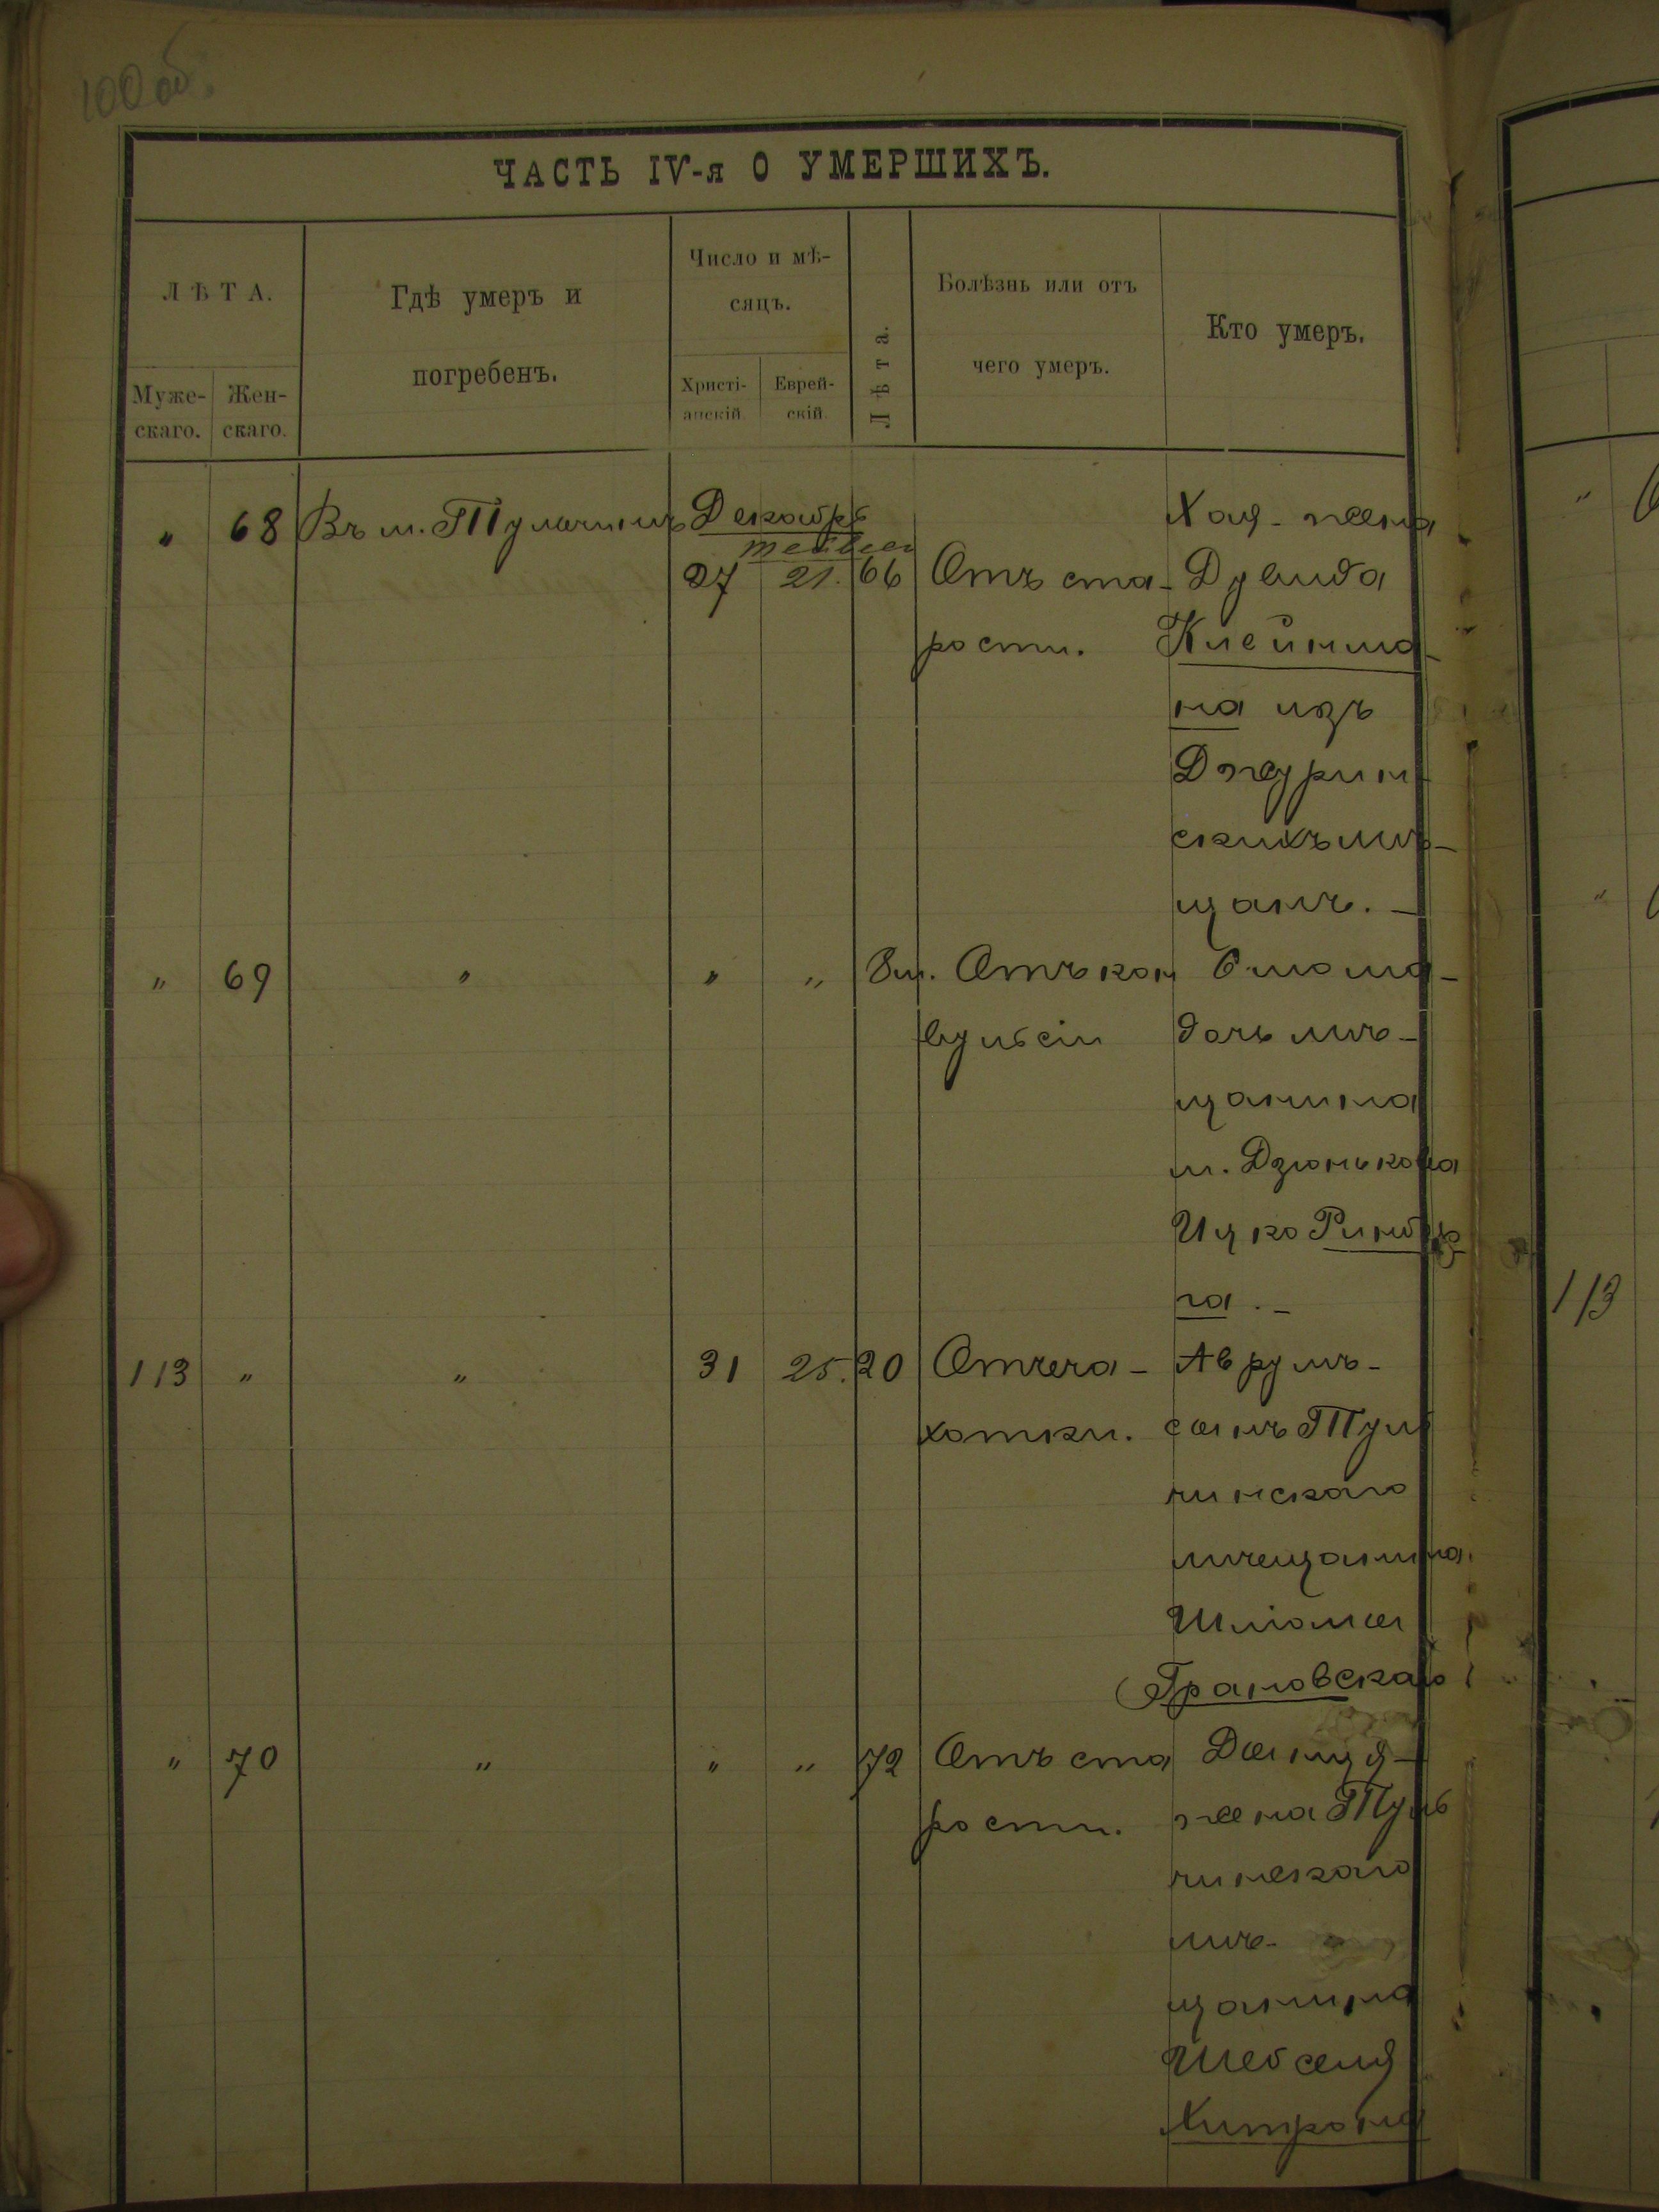 100 об.
ЧАСТЬ IV-я О УМЕРШИХЪ.
ЛѢТА.
Муже-
скаго.
Жен-
скаго.
Гдѣ умеръ и
погребенъ.
Число и мѣ-
сяцъ.
Христі-
анскій.
Еврей-
скій.
Лѣта.
Болѣзнь или отъ
чего умеръ.
Кто умеръ.
" 68 Въ м. Тульчинъ Декабрь Хая - жена
27 21. 66 Отъ ста- Дувида
рости. Клейнма-
на изъ
Джурин-
скихъ мѣ-
щанъ. -
" 69 " " " 8 м. Отъ кон дочь мѣ-
вульсіи
щанина
м. Дзюнькова
Ицко Ринбер
га. -
113 " " 31 25. 20 Отъ ча- Аврумъ-
хотки. сынъ Туль
чинскаго
мѣщанина
Шліомы
Грановскаго
" 70 " " " 72 Отъ ста
рости. жена Туль
чинскаго
мѣ-
щанина
Шебселя
Хитрона
"
"
113